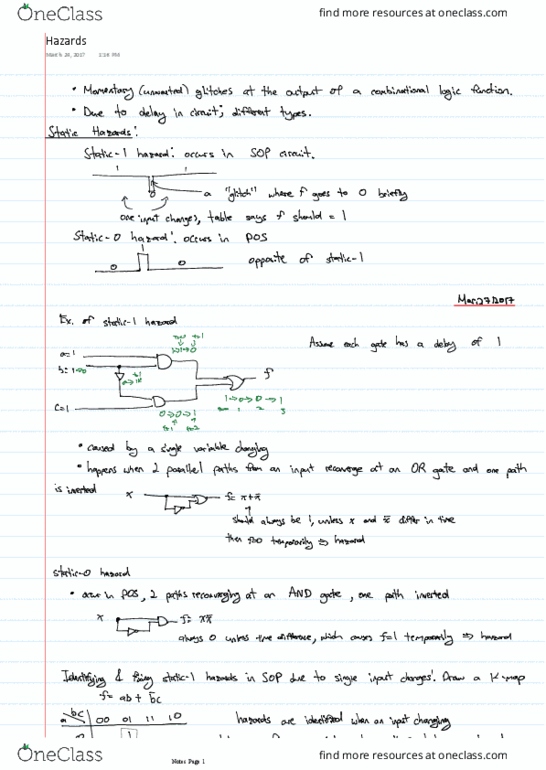 OneClass
find more resources at oneclass.com
Hazards
2:38 PM
• Momentary (unwanted) glitches at the output of a combinational logic function.
• Due to delay in circuit; different types.
Static Hazards:
Static-1 hazard: occurs in SOP circuit.
1 1
0
a "glitch" where f goes to 0 briefly
one input changes, table says f should = 1
Static-0 hazard: occurs in POS
1
0 0
opposite of static-1
Mar.27/2017
Ex. of static-1 hazard
Assume each gate has a delay of 1
t=1
1→1→0
a=1
b: 1→0
f
t=1
0→1
1→0→0→1
1 2 3
C=1
0→0→1
t=1 t=2
• caused by a single variable changing
• happens when 2 parallel paths from an input reconverge at an OR gate and one path
is inverted
x
f= x+x̄
should always be 1, unless x and x̄ differ in time
then f=0 temporarily ⇒ hazard
static-0 hazard
• occur in POS, 2 paths reconverging at an AND gate, one path inverted
x
f= xx̄
always 0 unless time difference, which causes f=1 temporarily ⇒ hazard
Identifying & fixing static-1 hazards in SOP due to single input changes: Draw a K-map
f= ab + b̄c
bc
a
00 01 11 10
hazards are identified when an input changing
1
OneClass
Notes Page 1
find more resources at oneclass.com